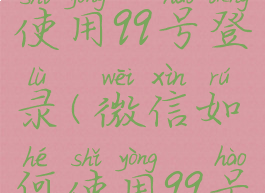 shǐ yòng hào dēng
使用99号登
lù wēi xìn rú
录(微信如
hé shǐ yòng hào
何使用99号